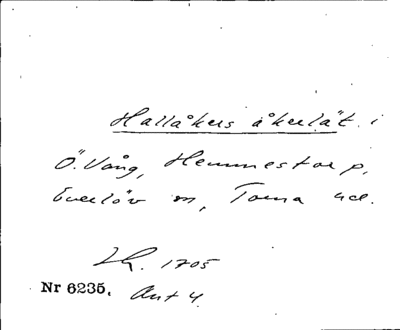 Hallåkers åkerlät i
Ö. Vång, Hemmestorp,
Everlöv sn, Torna hd.
Lh. 1705
Nr 6235. Akt 4